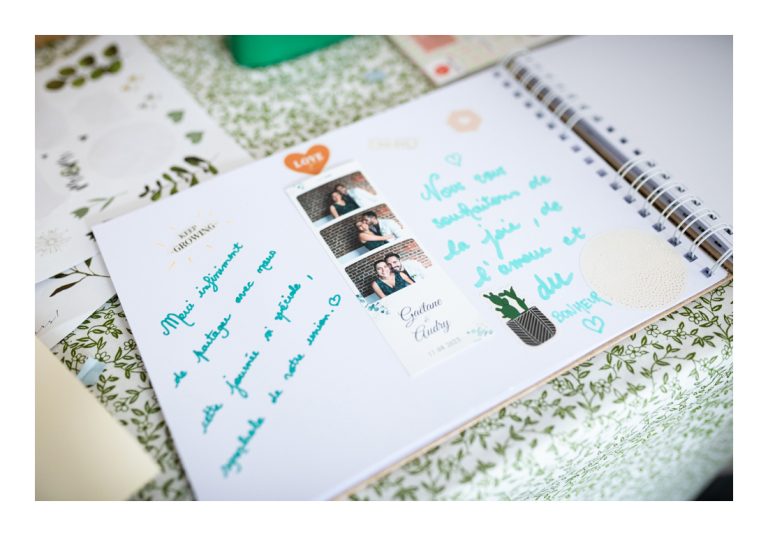 LOVE
KEEP
GROWING
Merci infiniment
de partager avec nous
cette journée si spéciale,
de notre union.
Gaetane
Audry
Nous vous
souhaitons de
la joie, de
l'amour et
du
BONHEUR